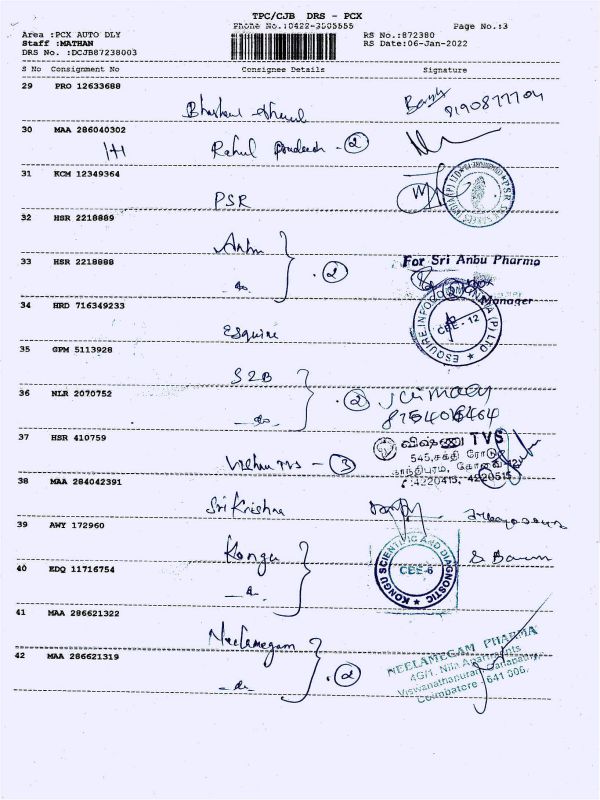 TPC/CJB DRS - PCX
Phone No.:0422-3505555
Page No.:3
Area :PCX AUTO DLY
RS No.:872380
Staff :MATHAN
RS Date:06-Jan-2022
DRS No. :DCJB87238003
S No Consignment No Consignee Details Signature
29 PRO 12633688
30 MAA 286040302
Rahul Pradeesh - 2
31 KCM 12349364
PSR
32 HSR 2218889
Anbu
33 HSR 2218888
2
For Sri Anbu Pharma
Manager
34 HRD 716349233
Esquire
CBE - 12
35 GPM 5113928
S2B
36 NLR 2070752
2
37 HSR 410759
விஷ்ணு TVS
545,சக்தி ரோடு
Vishnu TVS - 3
காந்திபுரம், கோவை-12
38 MAA 284042391
Sri Krishna
39 AWY 172960
Kongu
KONGU SCIENTIFIC AND DIAGNOSTIC
CBE-6
40 EDQ 11716754
41 MAA 286621322
Neelamegam
NEELAMEGAM PHARMA
4G/1, Nila Apartments
42 MAA 286621319
2
Coimbatore - 641 006.